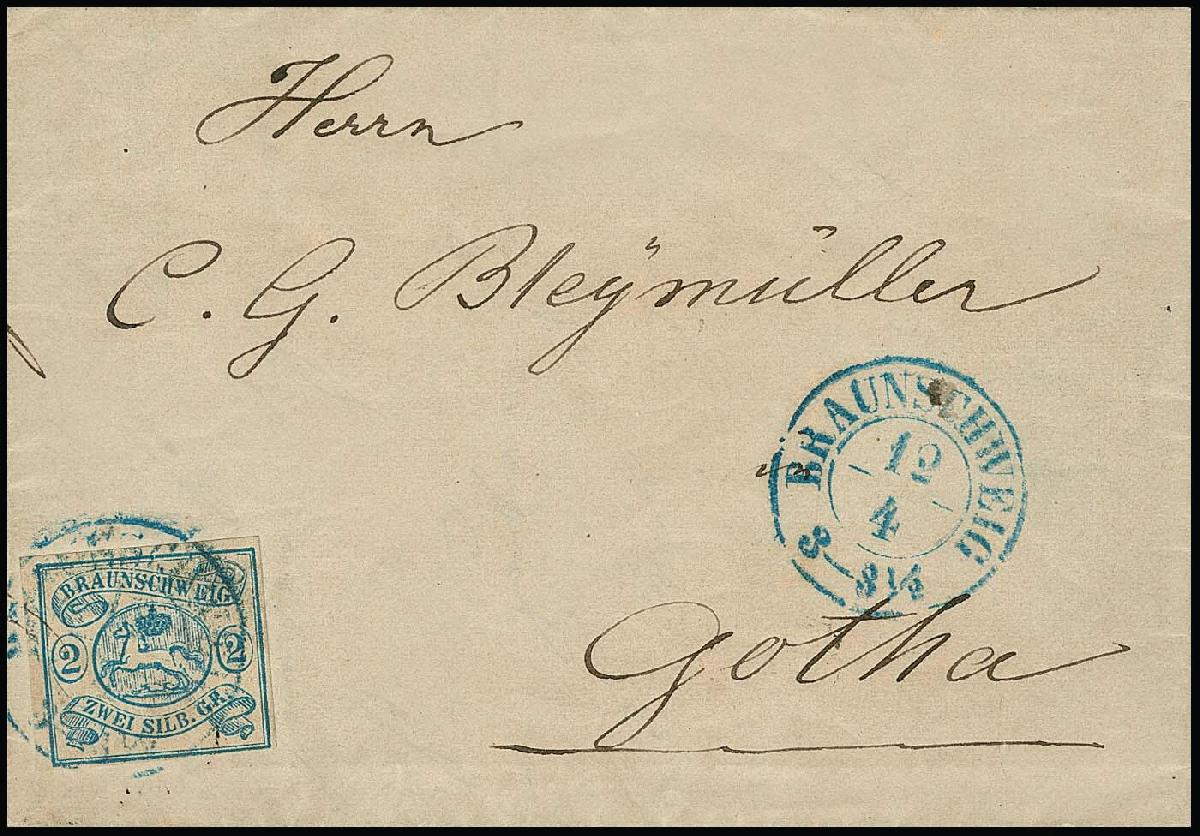 Herrn
C. G. Bleÿmüller
BRAUNSCHWEIG
12
4
3
Gotha
BRAUNSCHWEIG
2 2
ZWEI SILB. GR.